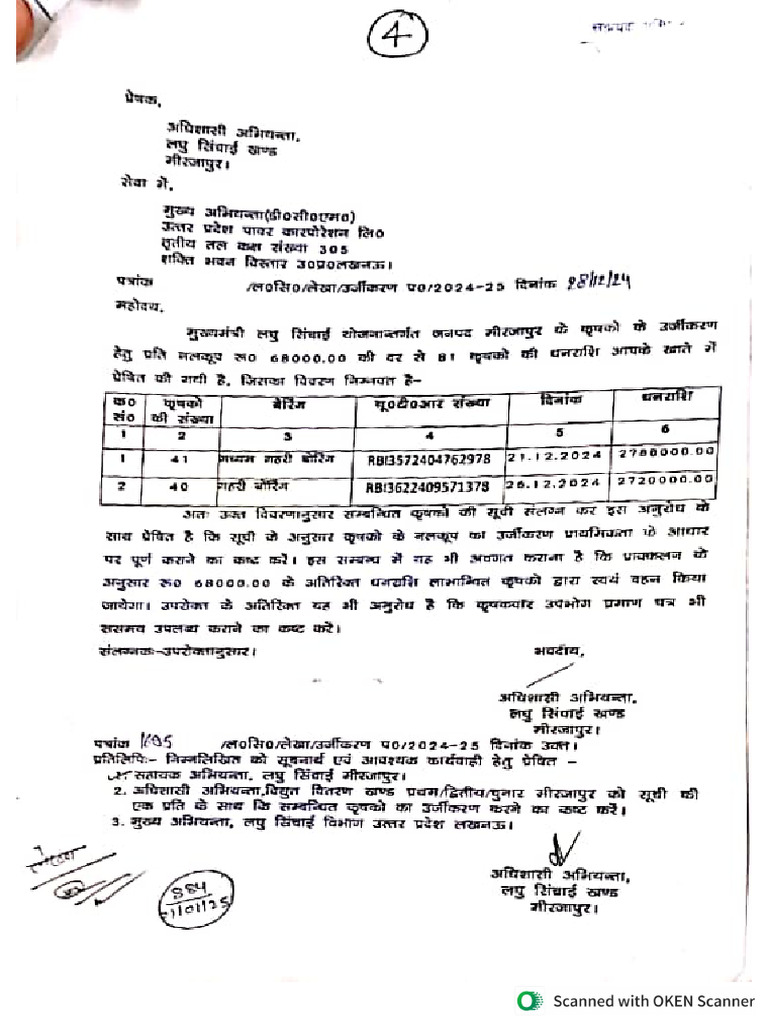 4
प्रेषक,
अधिशासी अभियन्ता,
लघु सिंचाई खण्ड
मीरजापुर।
सेवा में,
मुख्य अभियन्ता(डी०सी०एम०)
उत्तर प्रदेश पावर कारपोरेशन लि०
तृतीय तल कक्ष संख्या 305
शक्ति भवन विस्तार उ०प्र०लखनऊ।
पत्रांक /ल०सि०/लेखा/उर्जीकरण प०/2024-25 दिनांक 28/12/24
महोदय,
मुख्यमंत्री लघु सिंचाई योजनान्तर्गत जनपद मीरजापुर के कृषको के उर्जीकरण
हेतु प्रति नलकूप रू० 68000.00 की दर से 81 कृषको की धनराशि आपके खाते में
प्रेषित की गयी है, जिसका विवरण निम्नवत है-
क० सं० कृषको की संख्या बोरिंग यू०टी०आर संख्या दिनांक धनराशि
1 2 3 4 5 6
1 41 मध्यम गहरी बोरिंग RBI3572404762978 21.12.2024 2780000.00
2 40 गहरी बोरिंग RBI3622409571378 26.12.2024 2720000.00
अतः उक्त विवरणानुसार सम्बन्धित कृषकों की सूची संलग्न कर इस अनुरोध के
साथ प्रेषित है कि सूची के अनुसार कृषको के नलकूप का उर्जीकरण प्राथमिकता के आधार
पर पूर्ण कराने का कष्ट करें। इस सम्बन्ध में यह भी अवगत कराना है कि प्राक्कलन के
अनुसार रू० 68000.00 के अतिरिक्त धनराशि लाभान्वित कृषको द्वारा स्वयं वहन किया
जायेगा। उपरोक्त के अतिरिक्त यह भी अनुरोध है कि कृषकवार उपभोग प्रमाण पत्र भी
ससमय उपलब्ध कराने का कष्ट करें।
संलग्नकः-उपरोक्तानुसार। भवदीय,
अधिशासी अभियन्ता,
लघु सिंचाई खण्ड
मीरजापुर।
पत्रांक 1695 /ल०सि०/लेखा/उर्जीकरण प०/2024-25 दिनांक उक्त।
प्रतिलिपिः- निम्नलिखित को सूचनार्थ एवं आवश्यक कार्यवाही हेतु प्रेषित -
सहायक अभियन्ता, लघु सिंचाई मीरजापुर।
2. अधिशासी अभियन्ता,विद्युत वितरण खण्ड प्रथम/द्वितीय/चुनार मीरजापुर को सूची की
एक प्रति के साथ कि सम्बन्धित कृषको का उर्जीकरण करने का कष्ट करें।
3. मुख्य अभियन्ता, लघु सिंचाई विभाग उत्तर प्रदेश लखनऊ।
अधिशासी अभियन्ता,
लघु सिंचाई खण्ड
मीरजापुर।
884
/01/25
Scanned with OKEN Scanner